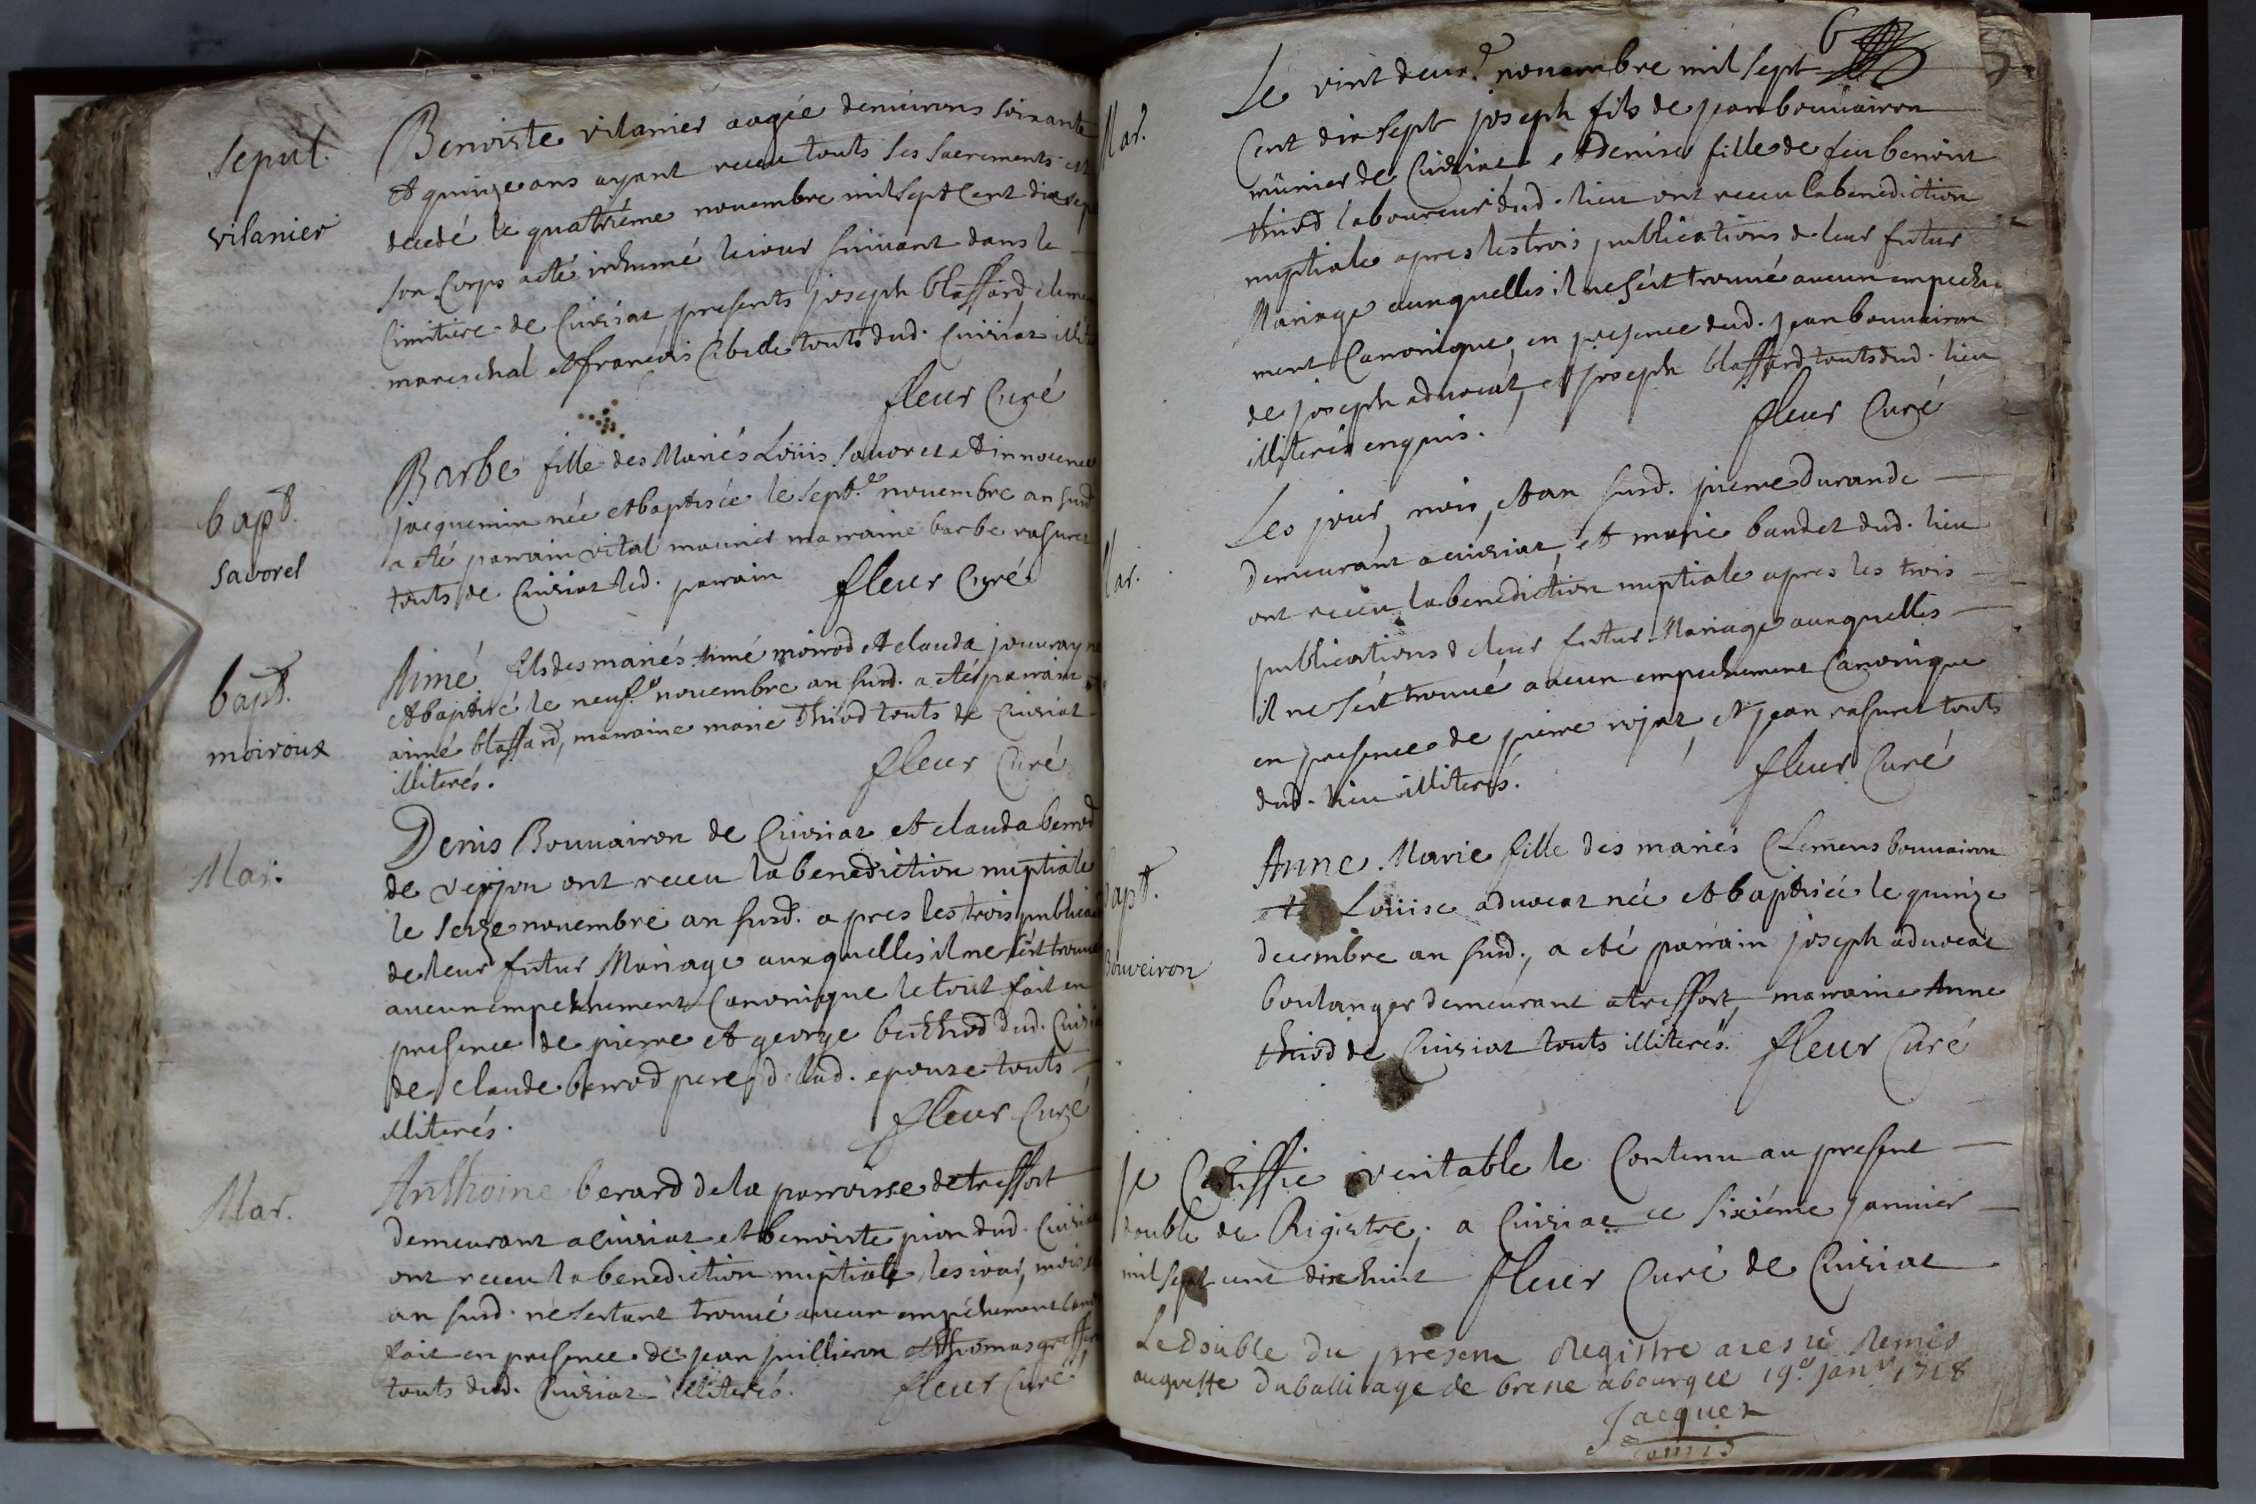 sepul.
vilanier
Benoiste vilanier aagée denuirons soixante
et quinze ans ayant receu touts ses sacrements est
decedé le quatriéme nouembre mil sept Cent dix sept
son Corps a eté inhumé le iour suiuant dans le
Cimitiere de Cuisiat, presents joseph blaffard clemen
mareschal et francois Cibelle touts dud. Cuisiat illite
fleur Curé
bapt.
savorel
Barbe fille des Mariés Loüis sauoret et innocence
jacquemin née et baptisée le sept.e nouembre an susd.
a eté parrain vital maunier marraine barbe rasuret
touts de Cuisiat led. parrain fleur Curé
bapt.
moiroux
Aimé fils des mariés aimé moirod et clauda jouuray né
et baptisé le neuf.e nouembre an susd. a eté parrain
aimé blaffard, marraine marie thiod touts de Cuisiat
illiterés. fleur Curé
Mar.
Denis Bouuairon de Cuisiat et clauda berrod
de verjon ont receu la benediction nuptiale
le seize nouembre an susd. apres les trois publica
de leur futur Mariage auxquelles il ne s'est trouué
aucun empechement Canonique le tout fait en
presence de pierre et george buthod dud. Cuisia
de claude berrod pere de lad. epouze touts
illiterés. fleur Curé
Mar.
Anthoine berard de la parroisse de treffort
demeurant a Cuisiat et benoiste pion dud. Cuisia
ont receu la benediction nuptiale, les iour, mois et
an susd. ne s'estant trouué aucun empéchement Can
fait en presence de jean juillieron et thomas greffe
touts dud. Cuisiat illiterés. fleur Curé
6
Mar.
Le vint deux.e nouembre mil sept
Cent dix sept joseph fils de jean bouuairon
münier de Cuisiat et denise fille de feu benoist
thiod laboureur dud. lieu ont receu la benediction
nuptiale apres les trois publications de leur futur
Mariage auxquelles il ne s'est trouué aucun empeche
ment Canonique, en presence dud. jean bouuairon
de joseph aduocat, et joseph blaffard touts dud. lieu
illiterés enquis. fleur Curé
Mar.
Les jour, mois, et an susd. pierre durande
demeurant a cuisiat, et marie baudet dud. lieu
ont receu la benediction nuptiale apres les trois
publications de leur futur Mariage auxquelles
il ne s'est trouué aucun empechement Canonique
en presence de pierre rojat, et jean rasuret touts
dud. lieu illiterés. fleur Curé
bapt.
Bouveiron
Anne Marie fille des mariés Clemens bouuairon
et Loüise aduocat née et baptisée le quinze
decembre an susd., a eté parrain joseph aduocat
boulanger demeurant a treffort, marraine Anne
thiod de Cuisiat touts illiterés. fleur Curé
je Certiffie veritable le Contenu au present
double de Registre, a Cuisiat ce sixiéme januier
mil sept cent dix huit fleur Curé de Cuisiat
Le double du present Registre a esté Remis
au greffe du balliage de bresse a bourg ce 19.e janv.r 1718
Jacquet